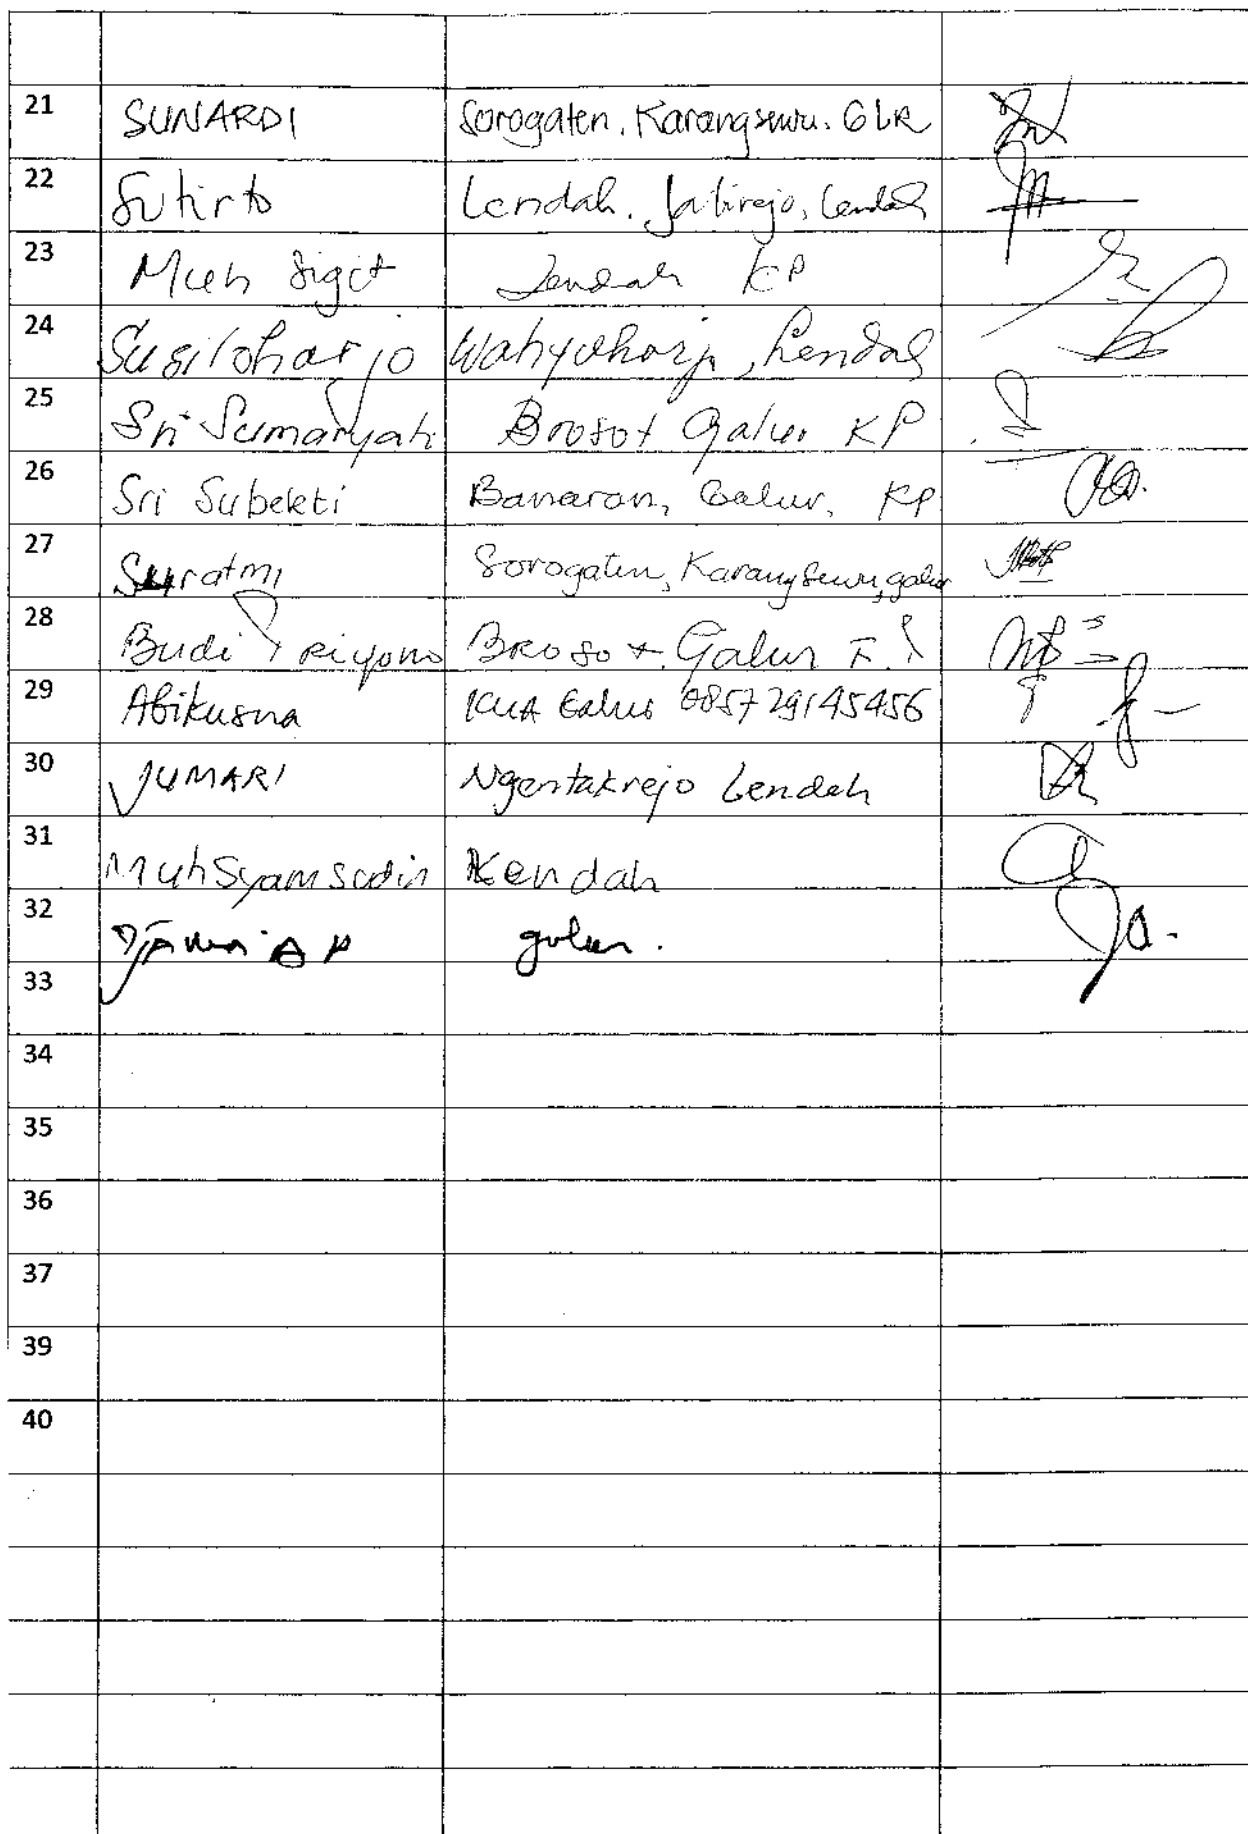 21 SUNARDI Sorogaten, Karangsewu. GLR
22 Sutirto Lendah. Jatirejo, Lendah
23 Muh Sigit Lendah KP
24 Susiloharjo Wahyuharjo, Lendah
25 Sri Sumaryati Brosot Galur KP
26 Sri Subekti Banaran, Galur, KP
27 Suratmi Sorogaten, Karangsewu, galur
28 Budi Priyono BROSOT Galur
29 Abikusna KUA Galur 085729145456
30 JUMARI Ngentakrejo Lendah
31 Muh Syamsudin Lendah
32 galur.
33
34
35
36
37
39
40